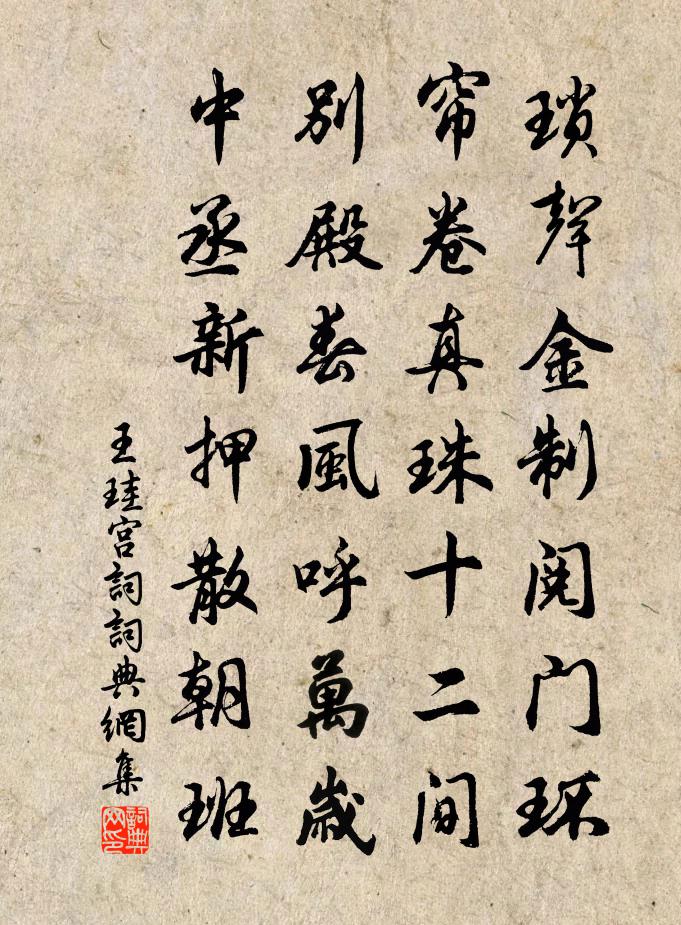 瑣聲金制閱门环
帘卷真珠十二间
别殿春風呼萬歲
中丞新押散朝班
王珪宫詞詞典網集
詞典网印